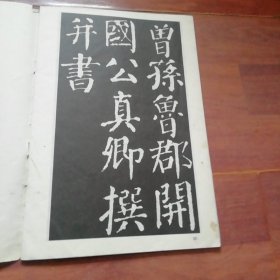 曾孫魯郡開
國公真卿撰
并書